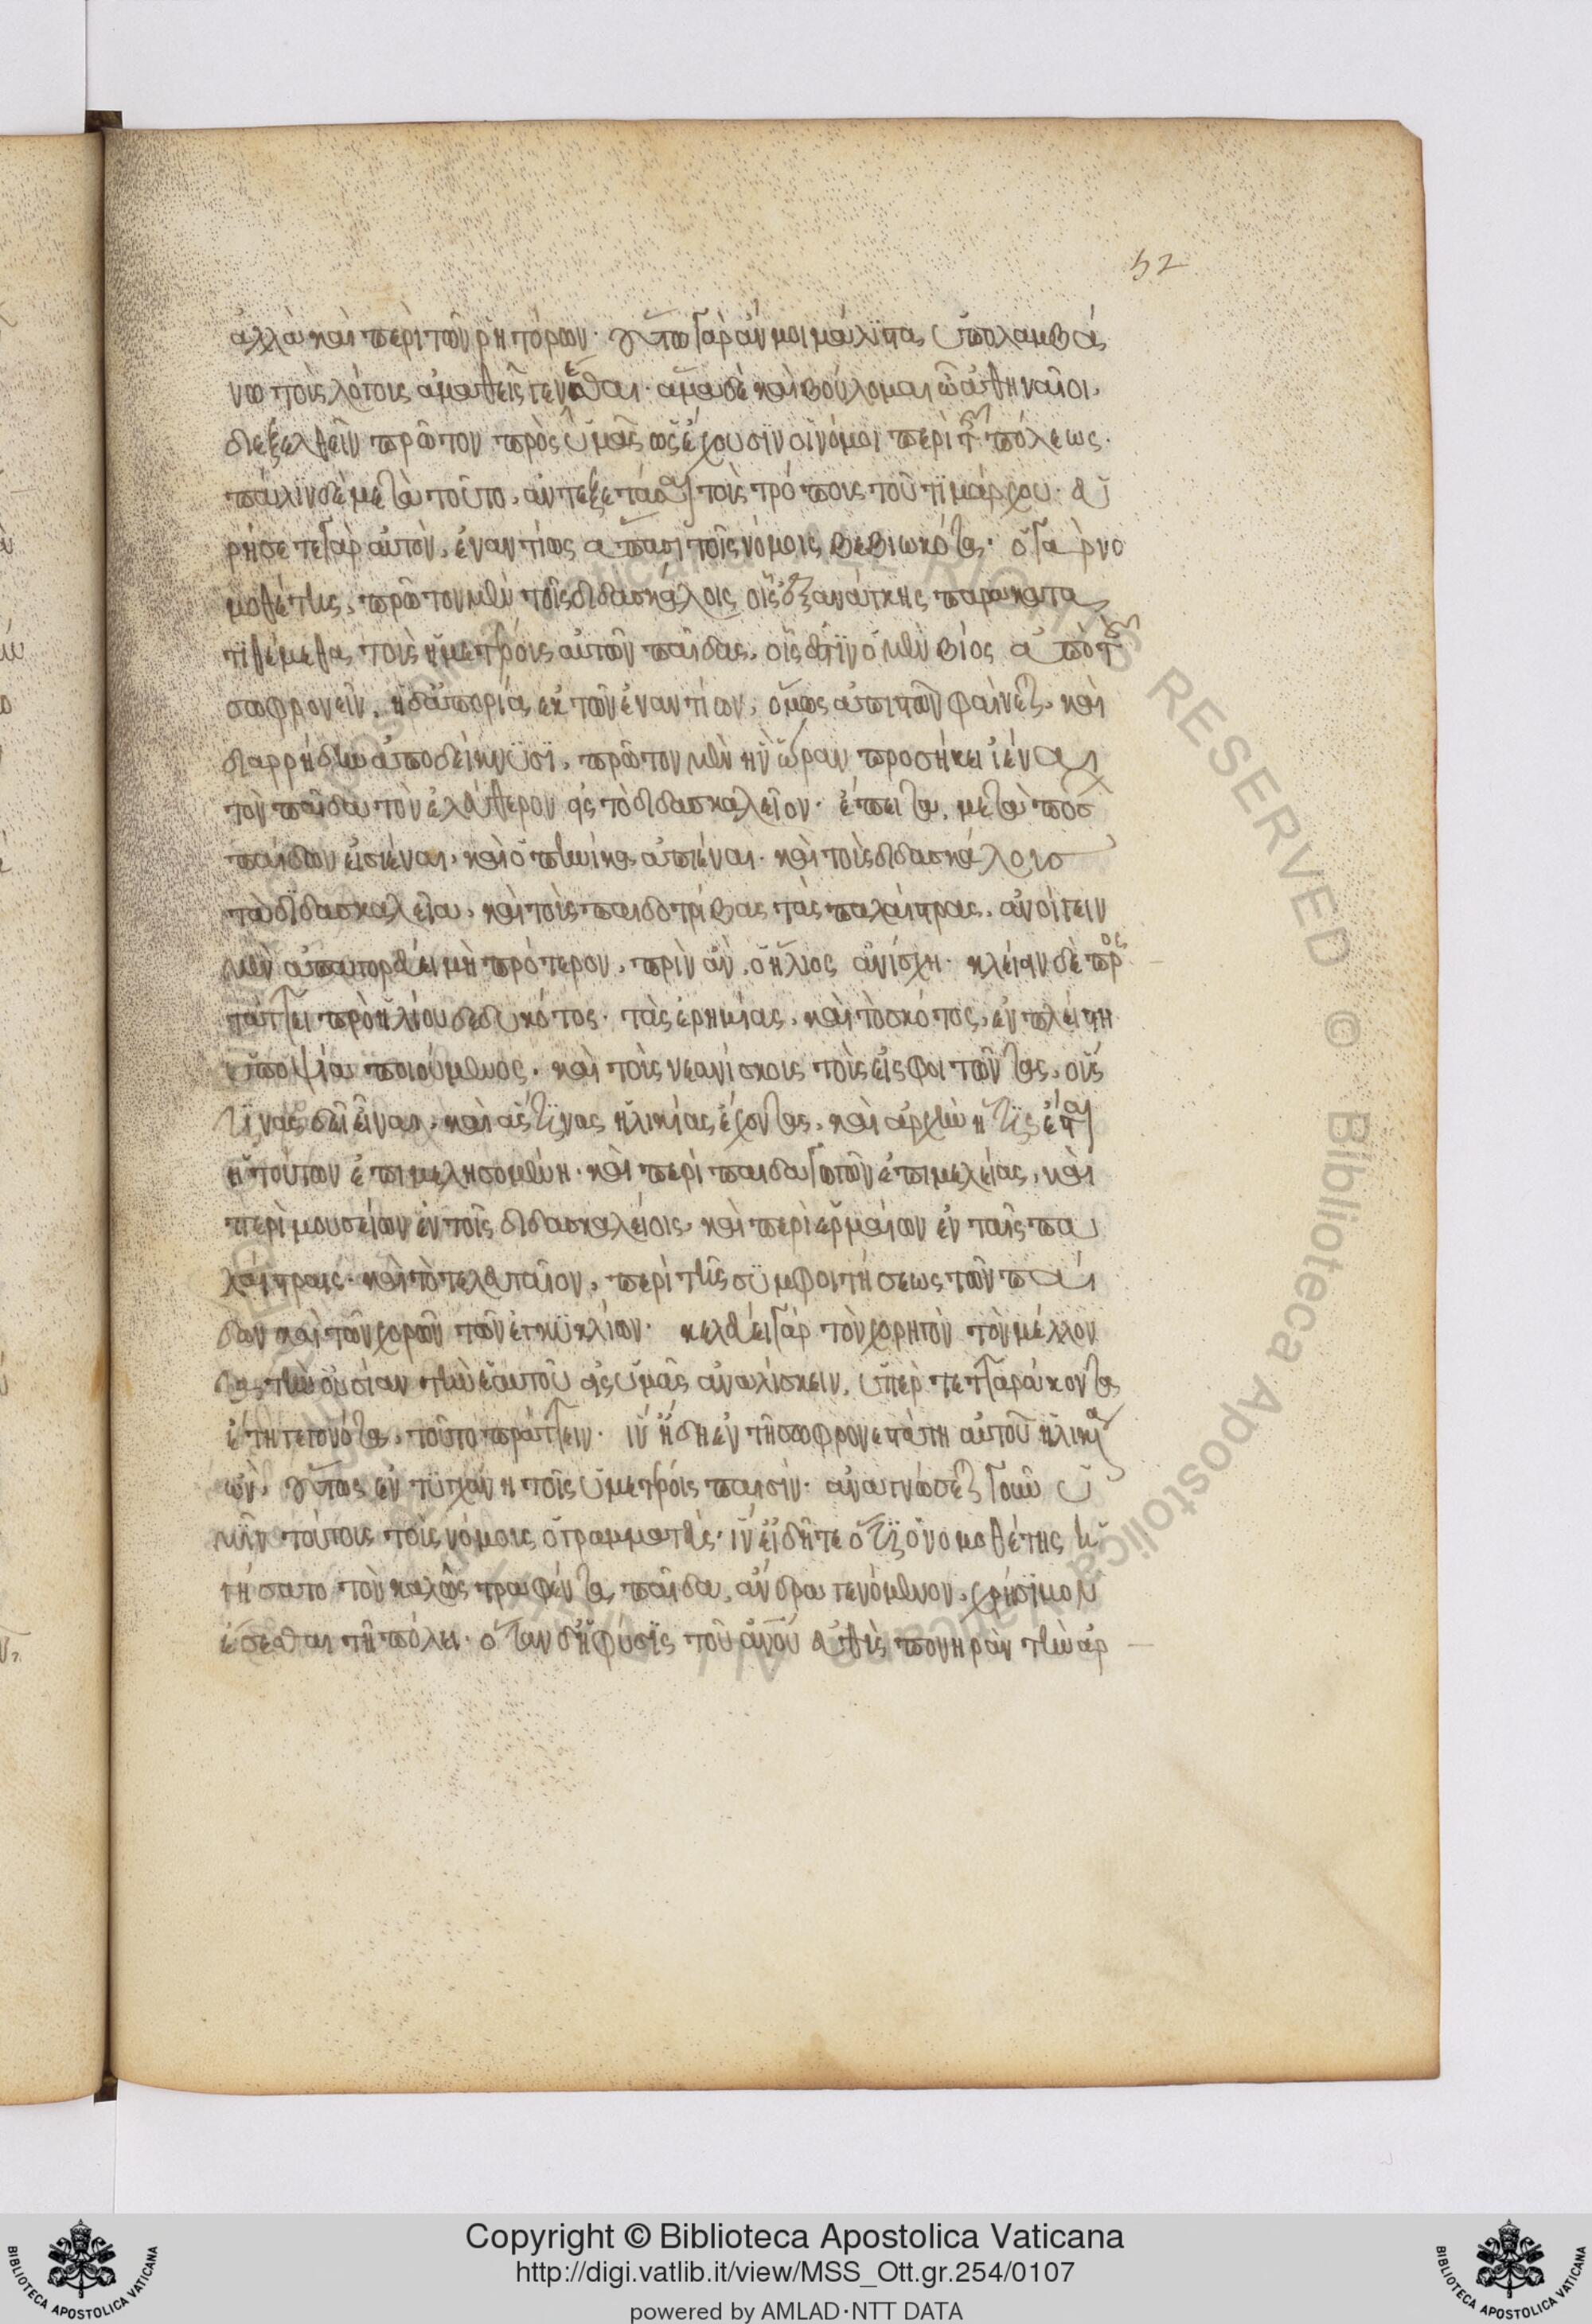 52
ἀλλὰ καὶ περὶ τῶν ῥητόρων· οὕτω γὰρ ἄν μοι μάλιστα ὑπολαμβά
νω τοῖς λόγοις εὐμαθεῖς γενέσθαι· ἅμα δὲ καὶ βούλομαι ὦ ἀθηναῖοι,
διεξελθεῖν πρῶτον πρὸς ὑμᾶς ὡς ἔχουσιν οἱ νόμοι περὶ τῆς πόλεως·
πάλιν δὲ μετὰ τοῦτο, ἀντεξετάσαι τοὺς τρόπους τοῦ τιμάρχου· εὑ
ρήσετε γὰρ αὐτὸν, ἐναντίως ἅπασι τοῖς νόμοις βεβιωκότα· ὁ γὰρ νο
μοθέτης, πρῶτον μὲν τοῖς διδασκάλοις οἷς ἐξ ἀνάγκης παρακατα
τιθέμεθα τοὺς ἡμετέρους αὐτῶν παῖδας, οἷς ἐστὶν ὁ μὲν βίος ἀπὸ τοῦ
σωφρονεῖν, ἡ δ' ἀπορία, ἐκ τῶν ἐναντίων, ὅμως ἀπιστῶν φαίνεται, καὶ
διαρρήδην ἀποδείκνυσι, πρῶτον μὲν ἣν ὥραν προσήκει ἰέναι
τὸν παῖδα τὸν ἐλεύθερον εἰς τὸ διδασκαλεῖον· ἔπειτα, μετὰ πόσ
παίδων εἰσιέναι, καὶ ὁπηνίκα ἀπιέναι· καὶ τοὺς διδασκάλους
τὰ διδασκαλεῖα, καὶ τοὺς παιδοτρίβας τὰς παλαίστρας, ἀνοίγειν
μὲν ἀπαγορεύει μὴ πρότερον, πρὶν ἂν, ὁ ἥλιος ἀνίσχῃ· κλείειν δὲ προσ
τάττει πρὸ ἡλίου δεδυκότος· τὰς ἐρημίας, καὶ τὸ σκότος, ἐν πλείστῃ
ὑποψίᾳ ποιούμενος· καὶ τοὺς νεανίσκους τοὺς εἰσφοιτῶντας, οὕς
τινας δεῖ εἶναι, καὶ ἅς τινας ἡλικίας ἔχοντας, καὶ ἀρχὴν ἥ τις ἔσται
ἡ τούτων ἐπιμελησομένη· καὶ περὶ παιδαγωγῶν ἐπιμελείας, καὶ
περὶ μουσείων ἐν τοῖς διδασκαλείοις, καὶ περὶ ἑρμαίων ἐν ταῖς πα
λαίστραις· καὶ τὸ τελευταῖον, περὶ τῆς συμφοιτήσεως τῶν παί
δων καὶ τῶν χορῶν τῶν ἐγκυκλίων· κελεύει γὰρ τὸν χορηγὸν τὸν μέλλον
τα τὴν οὐσίαν τὴν ἑαυτοῦ εἰς ὑμᾶς ἀναλίσκειν, ὑπὲρ τετταράκοντα
ἔτη γεγονότα, τοῦτο πράττειν· ἵν' ἤδη ἐν τῇ σωφρονεστάτῃ αὐτοῦ ἡλικίᾳ
ὢν, οὕτως ἐντυγχάνῃ τοῖς ὑμετέροις παισίν· ἀναγνώσεται οὖν ὑ
μῖν τούτους τοὺς νόμους ὁ γραμματεύς· ἵν' εἰδῆτε ὅτι ὁ νομοθέτης ἡ
γήσατο τὸν καλῶς τραφέντα παῖδα, ἄνδρα γενόμενον, χρήσιμον
ἔσεσθαι τῇ πόλει· ὅταν δ' ἡ φύσις τοῦ ἀνου εὐθὺς πονηρὰν τὴν ἀρ
Copyright © Biblioteca Apostolica Vaticana
http://digi.vatlib.it/view/MSS_Ott.gr.254/0107
powered by AMLAD·NTT DATA